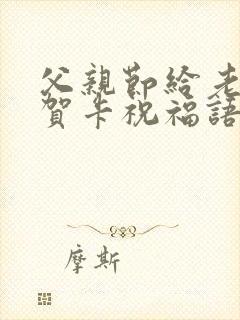 父親節給老
賀卡祝福語
摩斯